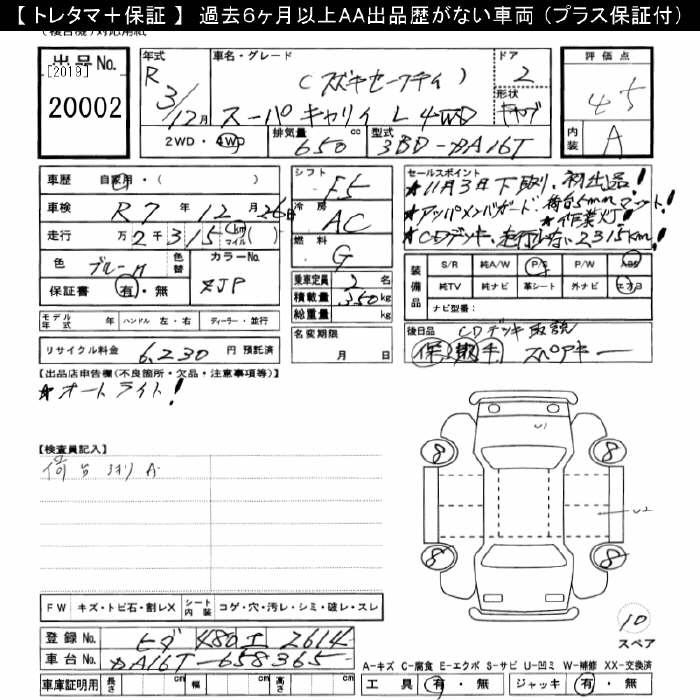 【 トレタマ＋保証 】 過去6ヶ月以上AA出品歴がない車両（プラス保証付）
出品No.
[2019]
20002
年式
R
3/12月
車名・グレード
(スズキセーフティ)
スーパーキャリイ L 4WD
ドア
2
形状
キャブ
評価点
4.5
内装
A
2WD・4WD
排気量
650 cc
型式
3BD-DA16T
車歴
自家用・（　　　）
車検
R 7 年 12 月 26日
走行
万 2 千 315 km マイル（　）
色
ブルーM
色替
カラーNo.
ZJP
保証書
有・無
シフト
F5
冷房
AC
燃料
G
乗車定員 2 名
積載量 350 kg
総重量 kg
セールスポイント
★11月3日下取り、初出品!
★アッパメンバガード、荷台5mmマット!
★作業灯!
★CDデッキ、走行少ない2315km!
装備品
S/R 純A/W P/S P/W ABS
純TV 純ナビ 革シート 外ナビ エアB
ナビ型番：
モデル年式 年 ハンドル 左・右 ディーラー・並行
リサイクル料金 6,230 円 預託済
名変期限
月 日
後日品 CDデッキ取説
保 取 手 スペアキー
【出品店申告欄(不良箇所・欠品・注意事項等)】
★オートライト!
【検査員記入】
荷台 A
U1
8 8
U2
8 8
10
スペア
FW キズ・トビ石・割レX シート内装 コゲ・穴・汚レ・シミ・破レ・スレ
登録No. 480 エ 2614
車台No. DA16T-658365
A-キズ C-腐食 E-エクボ S-サビ U-凹ミ W-補修 XX-交換済
車庫証明用 長さ cm 幅 cm 高さ cm
工具 有・無 ジャッキ 有・無